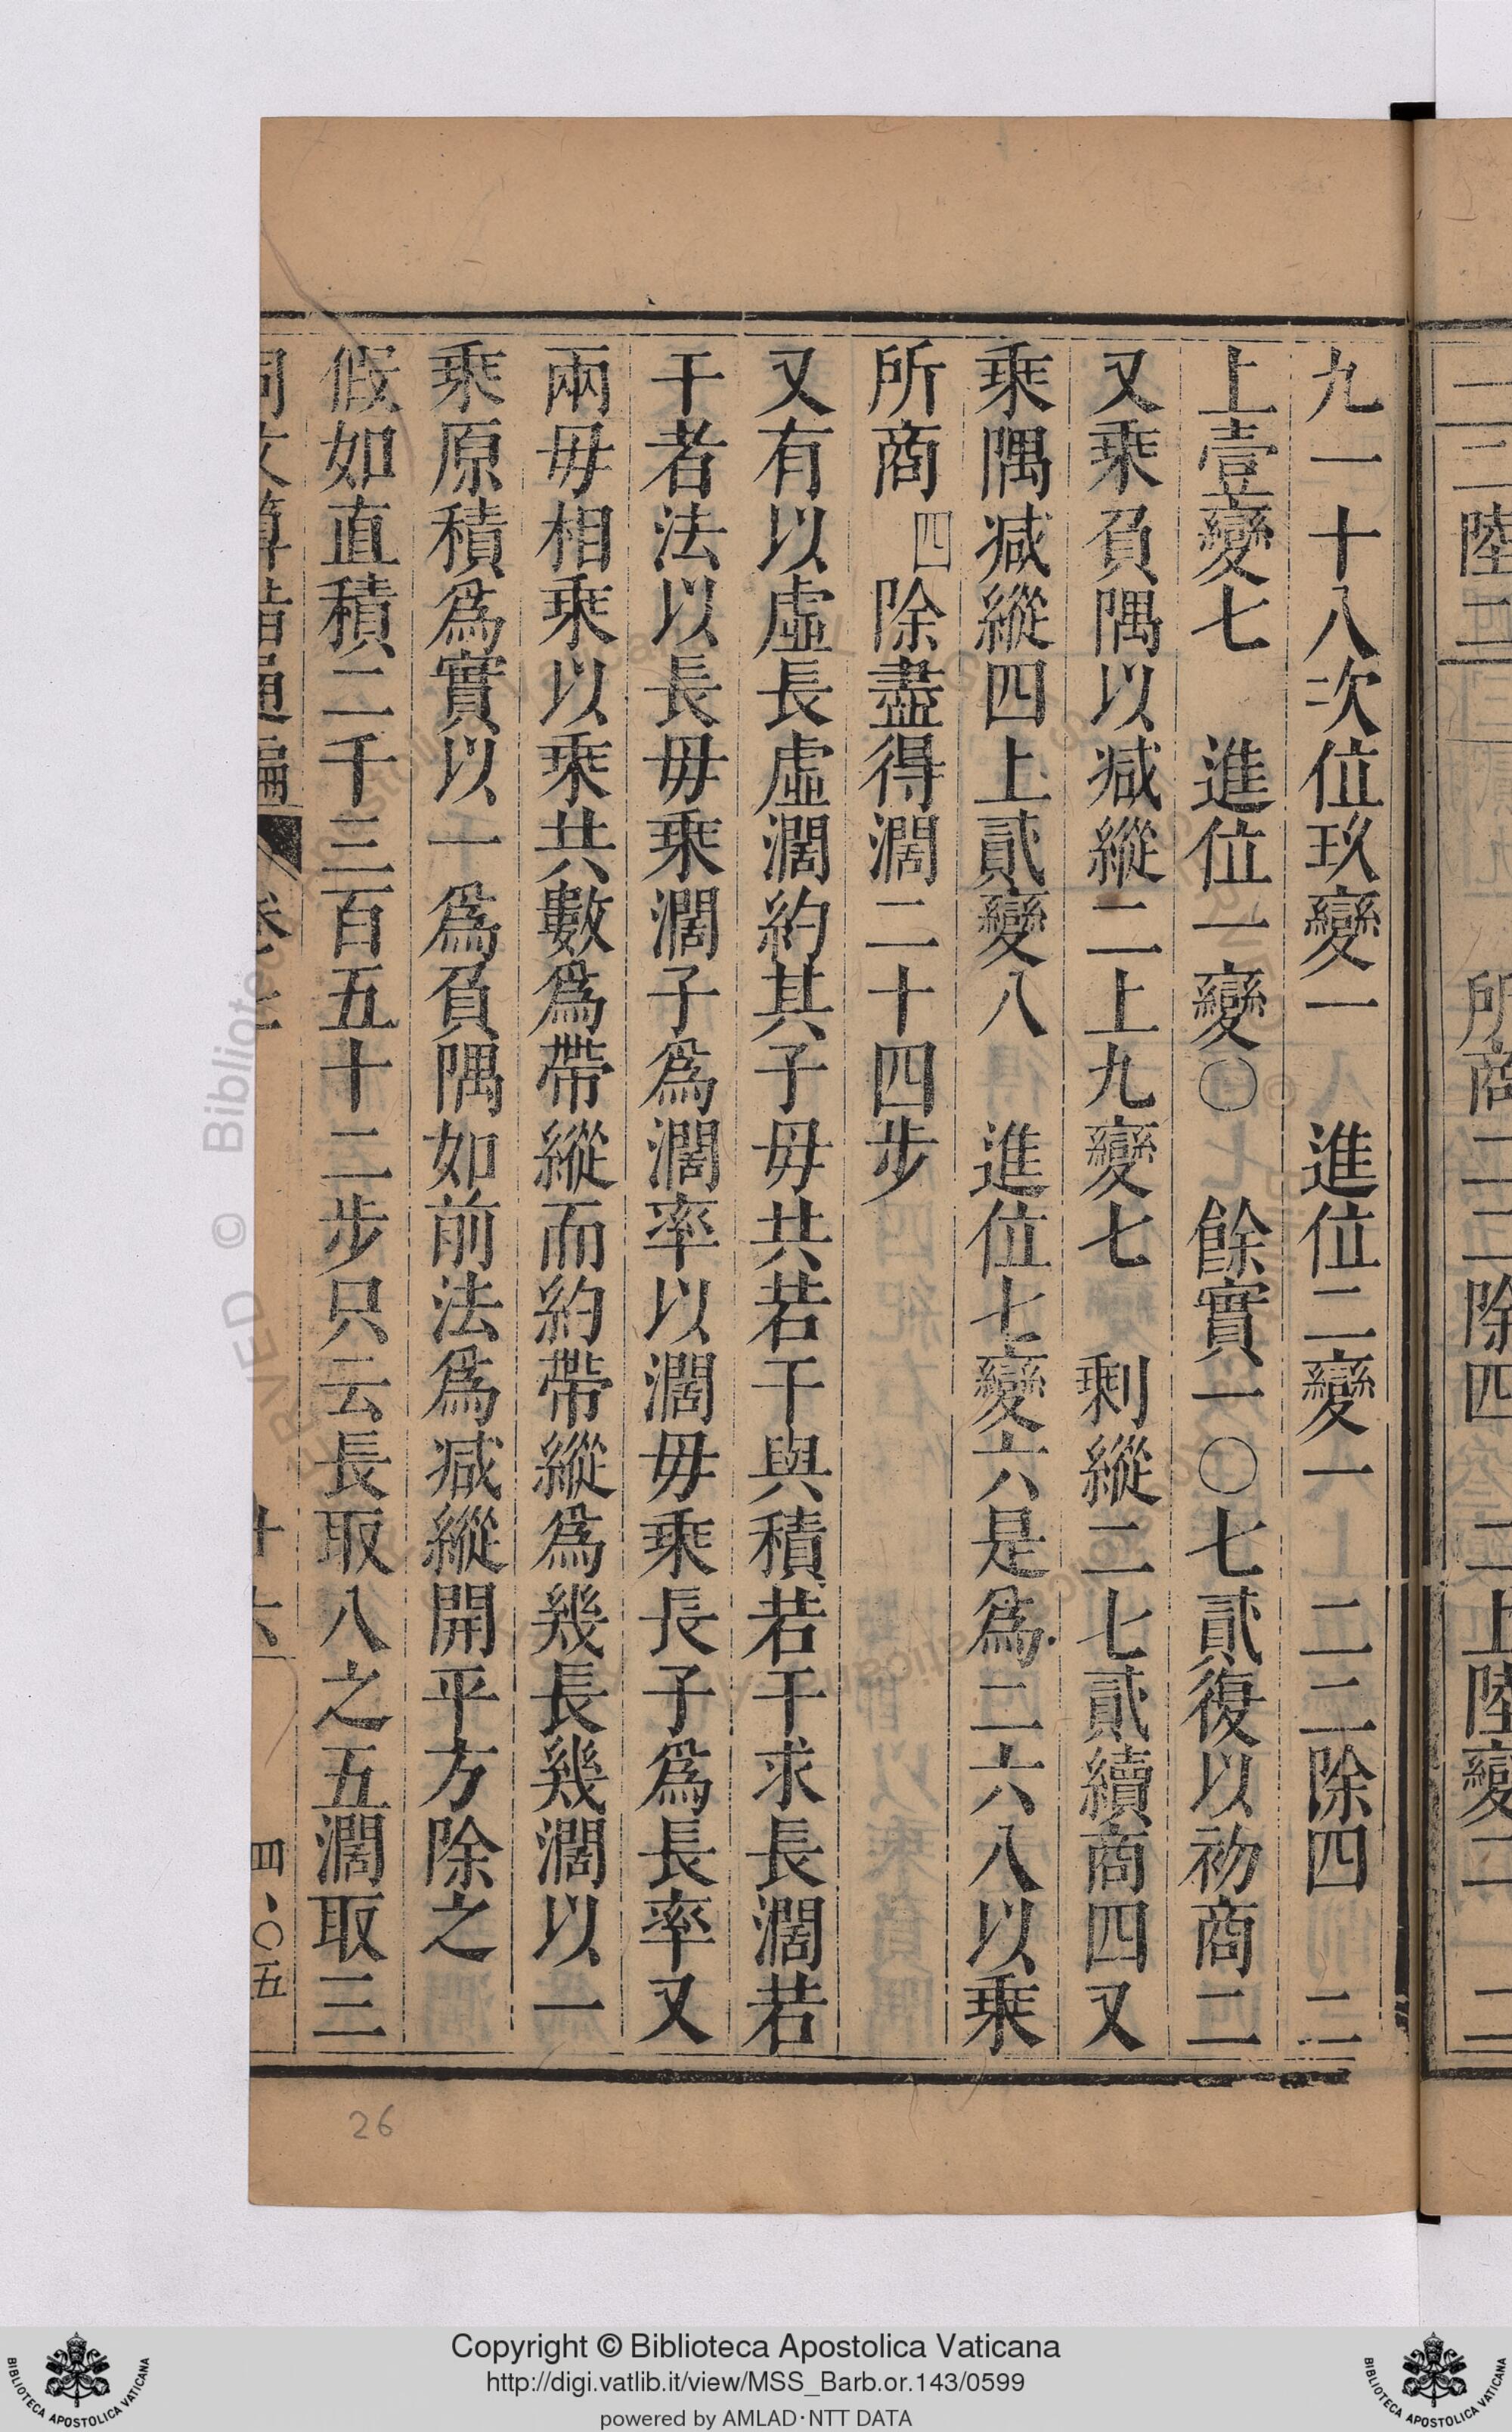 九一十八次位玖變一　進位二變一　二二除四　二二
上壹變七　進位一變〇　餘實一〇七貳復以初商二
又乘負隅以減縱二上九變七　剩縱二七貳續商四又
乘隅減縱四上貳變八　進位七變六是爲二六八以乘
所商四除盡得濶二十四步
又有以虛長虛濶約其子毋共若干與積若干求長濶若
干者法以長毋乘濶子爲濶率以濶毋乘長子爲長率又
兩毋相乘以乘共數爲帶縱而約帶縱爲幾長幾濶以一
乘原積爲實以一爲負隅如前法爲減縱開平方除之
假如直積二千三百五十二步只云長取八之五濶取三
同文算指通編　卷七　廿六　四、〇五
26
二陸二
所商二二除四　二上陸變二　二
© Biblioteca
Copyright © Biblioteca Apostolica Vaticana
http://digi.vatlib.it/view/MSS_Barb.or.143/0599
powered by AMLAD·NTT DATA
BIBLIOTECA APOSTOLICA VATICANA
BIBLIOTECA APOSTOLICA VATICANA